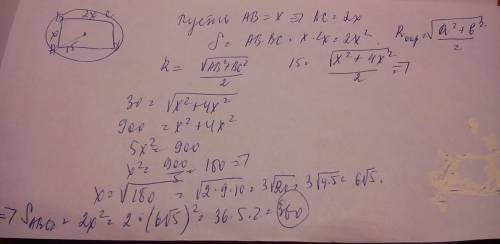 B 2x C
x
A 15
Пусть AB = x ⇒ BC = 2x
S = AB·BC = x·2x = 2x².
Rокр = √(a²+b²)/2
R = √(AB²+BC²)/2 15 = √(x²+4x²)/2 ⇒
30 = √(x²+4x²)
900 = x²+4x²
5x² = 900
x² = 900/5 = 180 ⇒
x = √180 = √(2·9·10) = 3√20 = 3√(4·5) = 6√5.
⇒ S ABCD = 2x² = 2·(6√5)² = 36·5·2 = 360